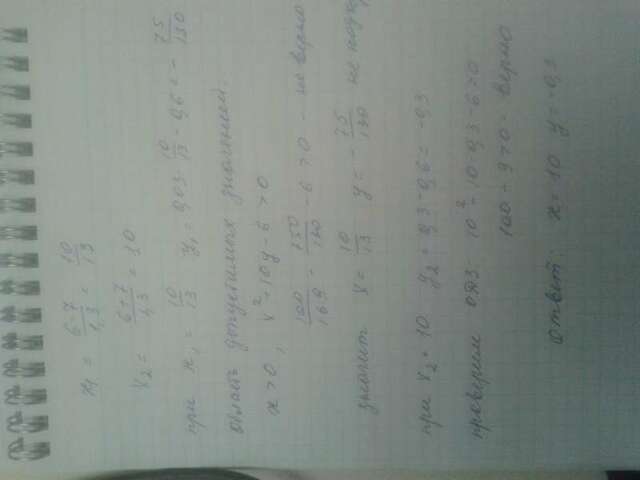 x₁ = 6-7/1,3 = 10/13
x₂ = 6+7/1,3 = 10
при x₁ = 10/13 y₁ = 0,03 · 10/13 - 0,6 = - 75/130
область допустимых значений.
x > 0, x² + 10y - 6 > 0
100/169 - 750/130 - 6 > 0 - не верно
значит x = 10/13 y = - 75/130 не
при x₂ = 10 y₂ = 0,3 - 0,6 = -0,3
проверим ОДЗ: 10² - 10 · 0,3 - 6 > 0
100 - 9 > 0 - верно
ответ: x = 10 y = -0,3